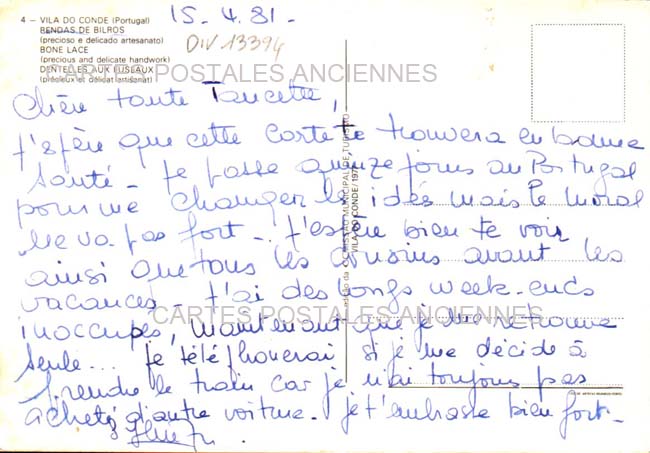 15.4.81-
4 - VILA DO CONDE (Portugal)
RENDAS DE BILROS
(precioso e delicado artesanato)
BONE LACE
(precious and delicate handwork)
DENTELLES AUX FUSEAUX
(précieux et délicat artisanat)
DIV 13394
CARTES POSTALES ANCIENNES
Chère toute Tancette,
J'espère que cette carte te trouvera en bonne
santé - Je passe quinze jours au Portugal
pour me changer les idés mais le moral
ne va pas fort - J'espère bien te voir
ainsi que tous les cousins avant les
vacances - J'ai des longs week-ends
CARTES POSTALES ANCIENNES
inoccupés, maintenant que je me retrouve
seule... je téléphonerai si je me décide à
prendre le train car je n'ai toujours pas
acheté d'autre voiture. Je t'embrasse bien fort -